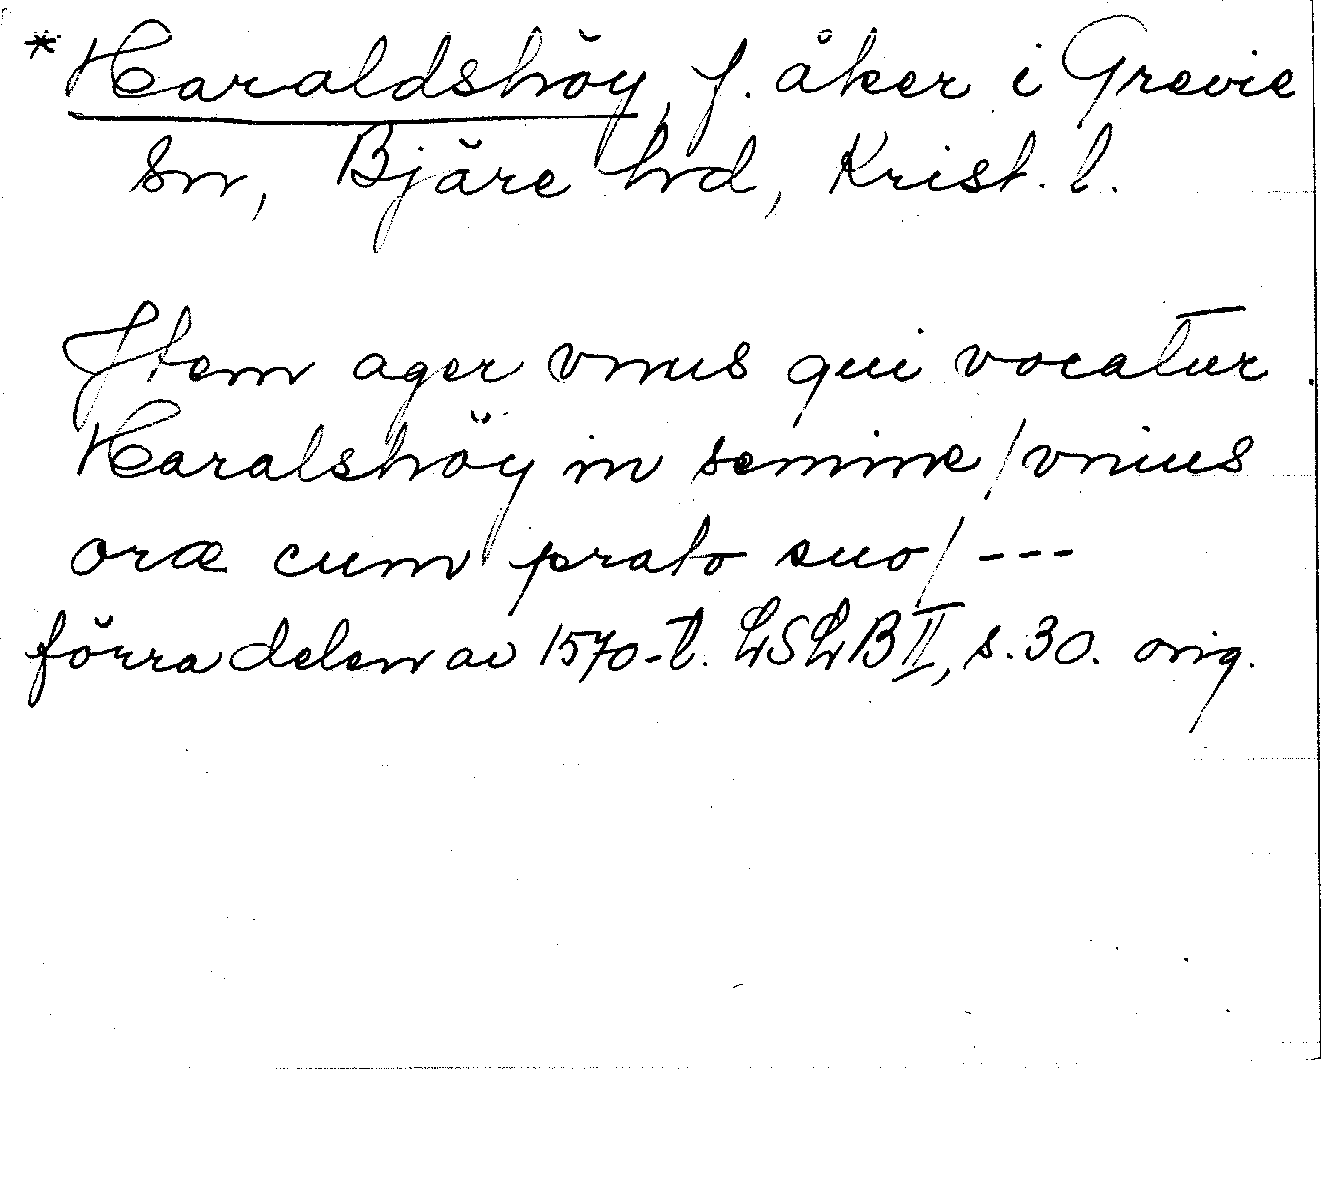 * Haraldshöy, f. åker i Grevie
sn, Bjäre hd, Krist. l.
Jtem ager vnus qui vocatur
Haralshöy in semine / vnius
oræ cum prato suo / ---
förra delen av 1570-t. LSLB II, s. 30. orig.